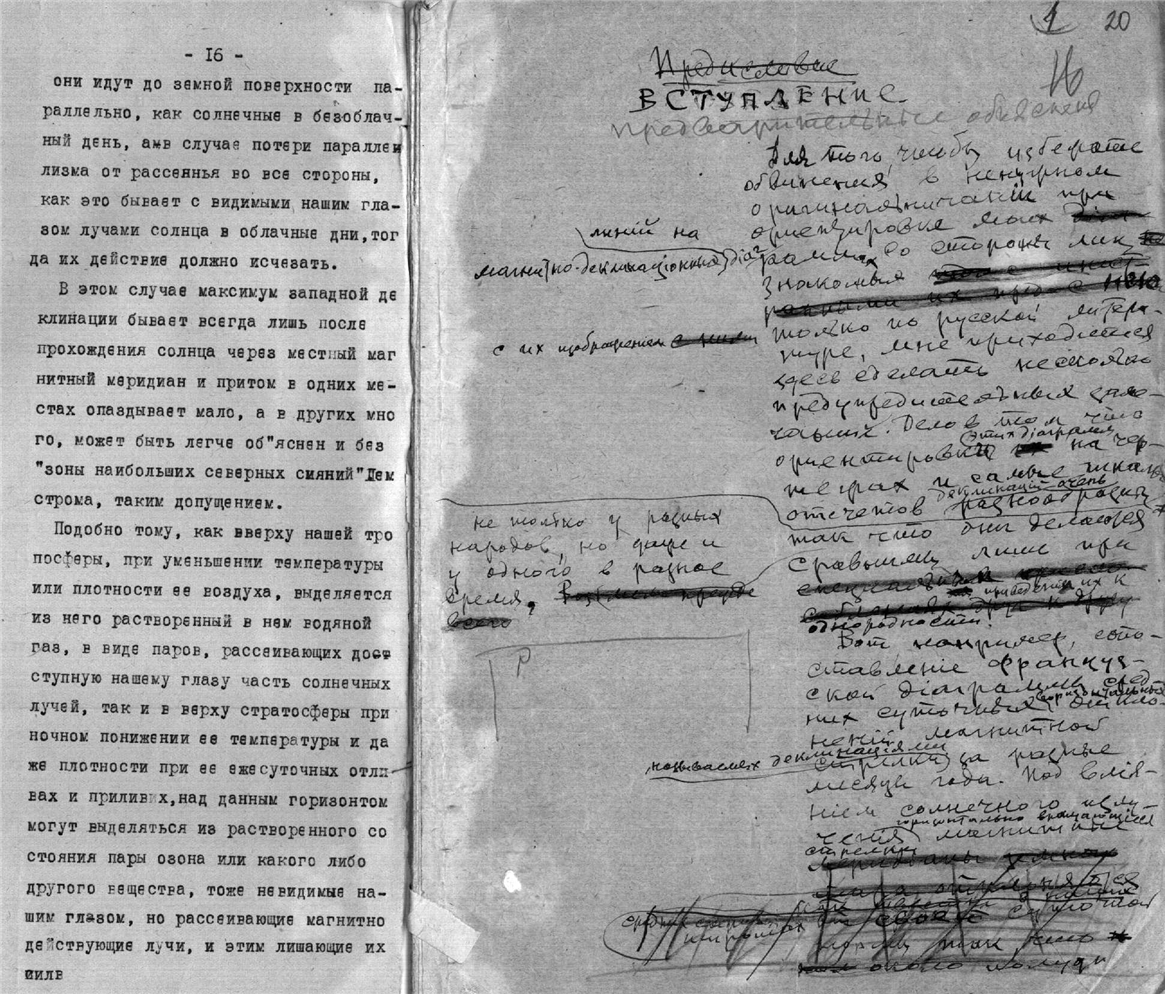 - I6 -
они идут до земной поверхности па-
раллельно, как солнечные в безоблач-
ный день, амв случае потери параллел
лизма от рассеянья во все стороны,
как это бывает с видимыми нашим гла-
зом лучами солнца в облачные дни,тог
да их действие должно исчезать.
В этом случае максимум западной де
клинации бывает всегда лишь после
прохождения солнца через местный маг
нитный меридиан и притом в одних ме-
стах опаздывает мало, а в других мно
го, может быть легче об"яснен и без
"зоны наибольших северных сияний"Лем
строма, таким допущением.
Подобно тому, как вверху нашей тро
посферы, при уменьшении температуры
или плотности ее воздуха, выделяется
из него растворенный в нем водяной
газ, в виде паров, рассеивающих дост
ступную нашему глазу часть солнечных
лучей, так и в верху стратосферы при
ночном понижении ее температуры и да
же плотности при ее ежесуточных отли
вах и приливах,над данным горизонтом
могут выделяться из растворенного со
стояния пары озона или какого либо
другого вещества, тоже невидимые на-
шим глазом, но рассеивающие магнитно
действующие лучи, и этим лишающие их
1 20
Предисловие
ВСТУПЛЕНИЕ
предварительные объяснения
Для того, чтобы избежать
обвинения в ненужном
оригинальничаніи при
ориентировке моих діа
линій на
магнитно-деклинаціонных
грамм со стороны лиц
знакомых
с их изображением
только по русской литера-
туре, мне приходится
здесь сделать несколько
предупредительных заме-
чаний. Дело в том что
этих діаграмм
ориентировки на чер-
тежах и самые шкалы
деклинацій очень
отсчетов разнообразны
не только у разных
народов, но даже и
у одного в разное
время,
так что они делаются
сравнимы лишь при
приведении их к
однородности.
Вот например, сопо-
ставленіе француз-
ской діаграммы сред
них суточных
горизонтальных
неній магнитной
называемых деклинаціями
стрелки за разные
месяцы года. Под влія-
ніем солнечного излу-
горизонтально вращающіеся
ченія магнитные
стрелки